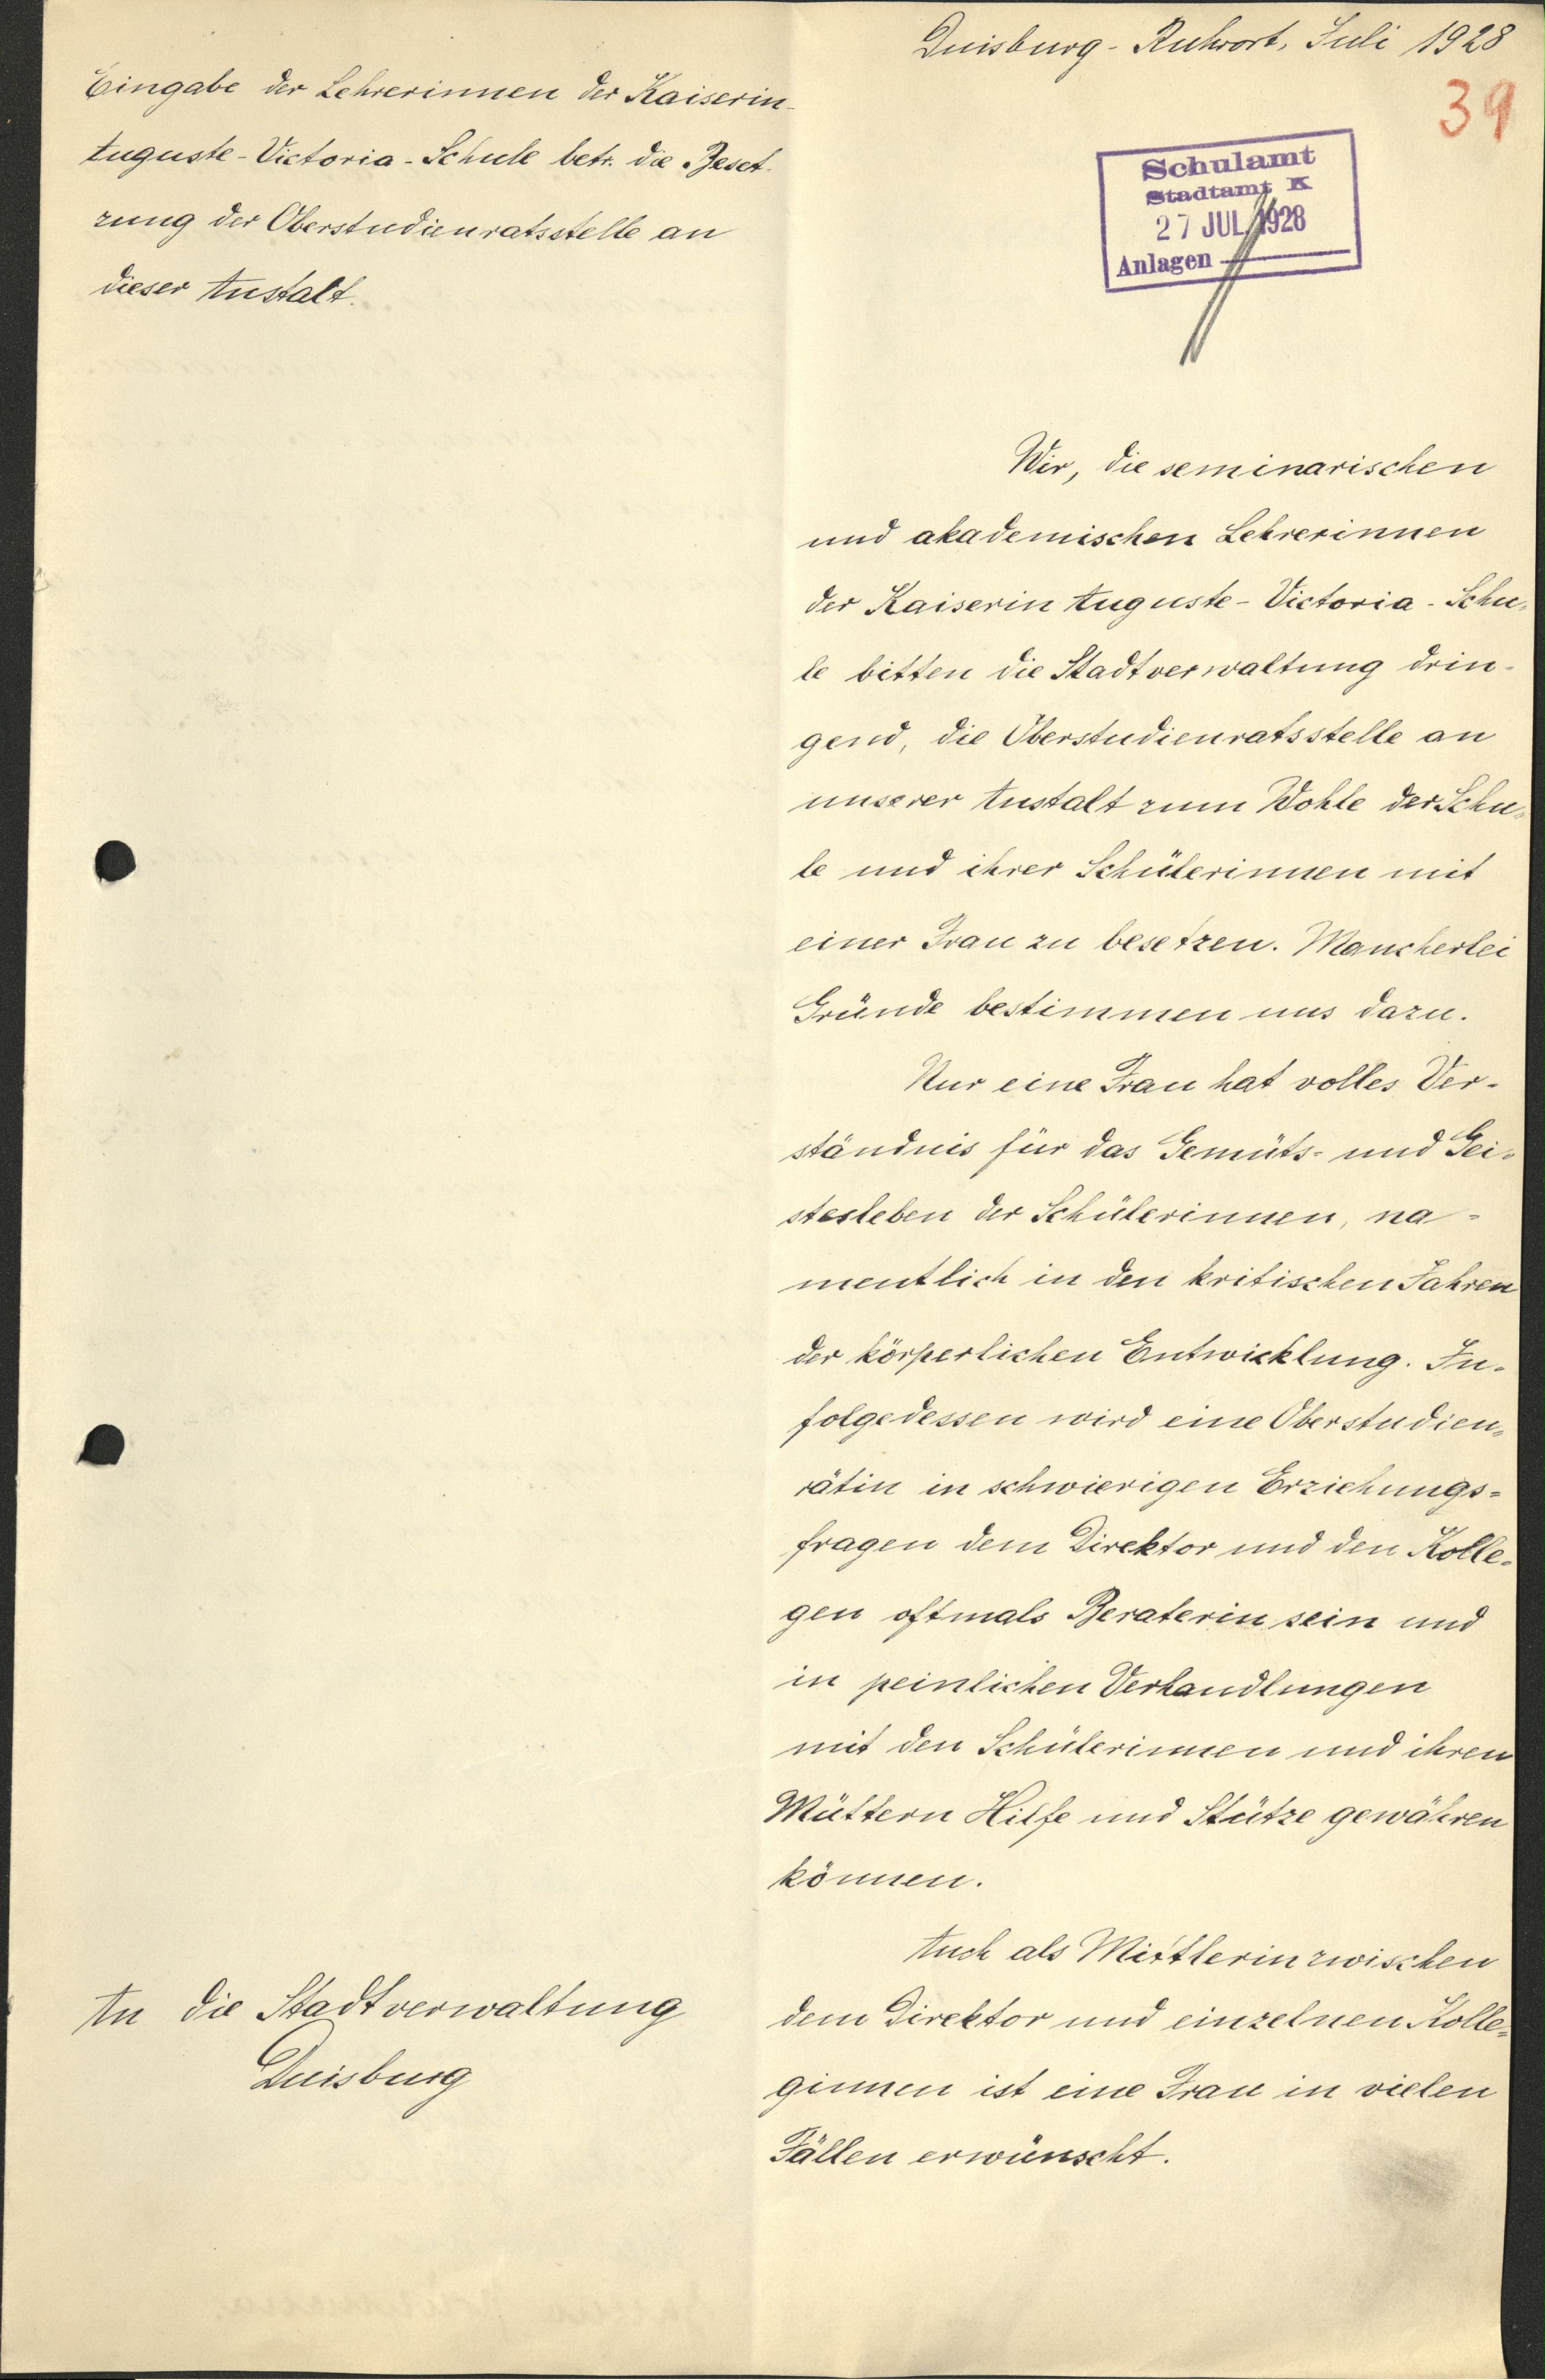 Duisburg-Ruhrort, Juli 1928
39
Eingabe der Lehrerinnen der Kaiserin-
Auguste-Victoria-Schule betr. die Beset-
zung der Oberstudienratsstelle an
dieser Anstalt.
Schulamt
Stadtamt K
27 JUL. 1928
Anlagen
Wir, die seminarischen
und akademischen Lehrerinnen
der Kaiserin Auguste-Victoria-Schu-
le bitten die Stadtverwaltung drin-
gend, die Oberstudienratsstelle an
unserer Anstalt zum Wohle der Schu-
le und ihrer Schülerinnen mit
einer Frau zu besetzen. Mancherlei
Gründe bestimmen uns dazu.
Nur eine Frau hat volles Ver-
ständnis für das Gemüts- und Gei-
stesleben der Schülerinnen, na-
mentlich in den kritischen Jahren
der körperlichen Entwicklung. In-
folgedessen wird eine Oberstudien-
rätin in schwierigen Erziehungs-
fragen dem Direktor und den Kolle-
gen oftmals Beraterin sein und
in peinlichen Verhandlungen
mit den Schülerinnen und ihren
Müttern Hilfe und Stütze gewähren
können.
Auch als Mittlerin zwischen
dem Direktor und einzelnen Kolle-
ginnen ist eine Frau in vielen
Fällen erwünscht.
An die Stadtverwaltung
Duisburg